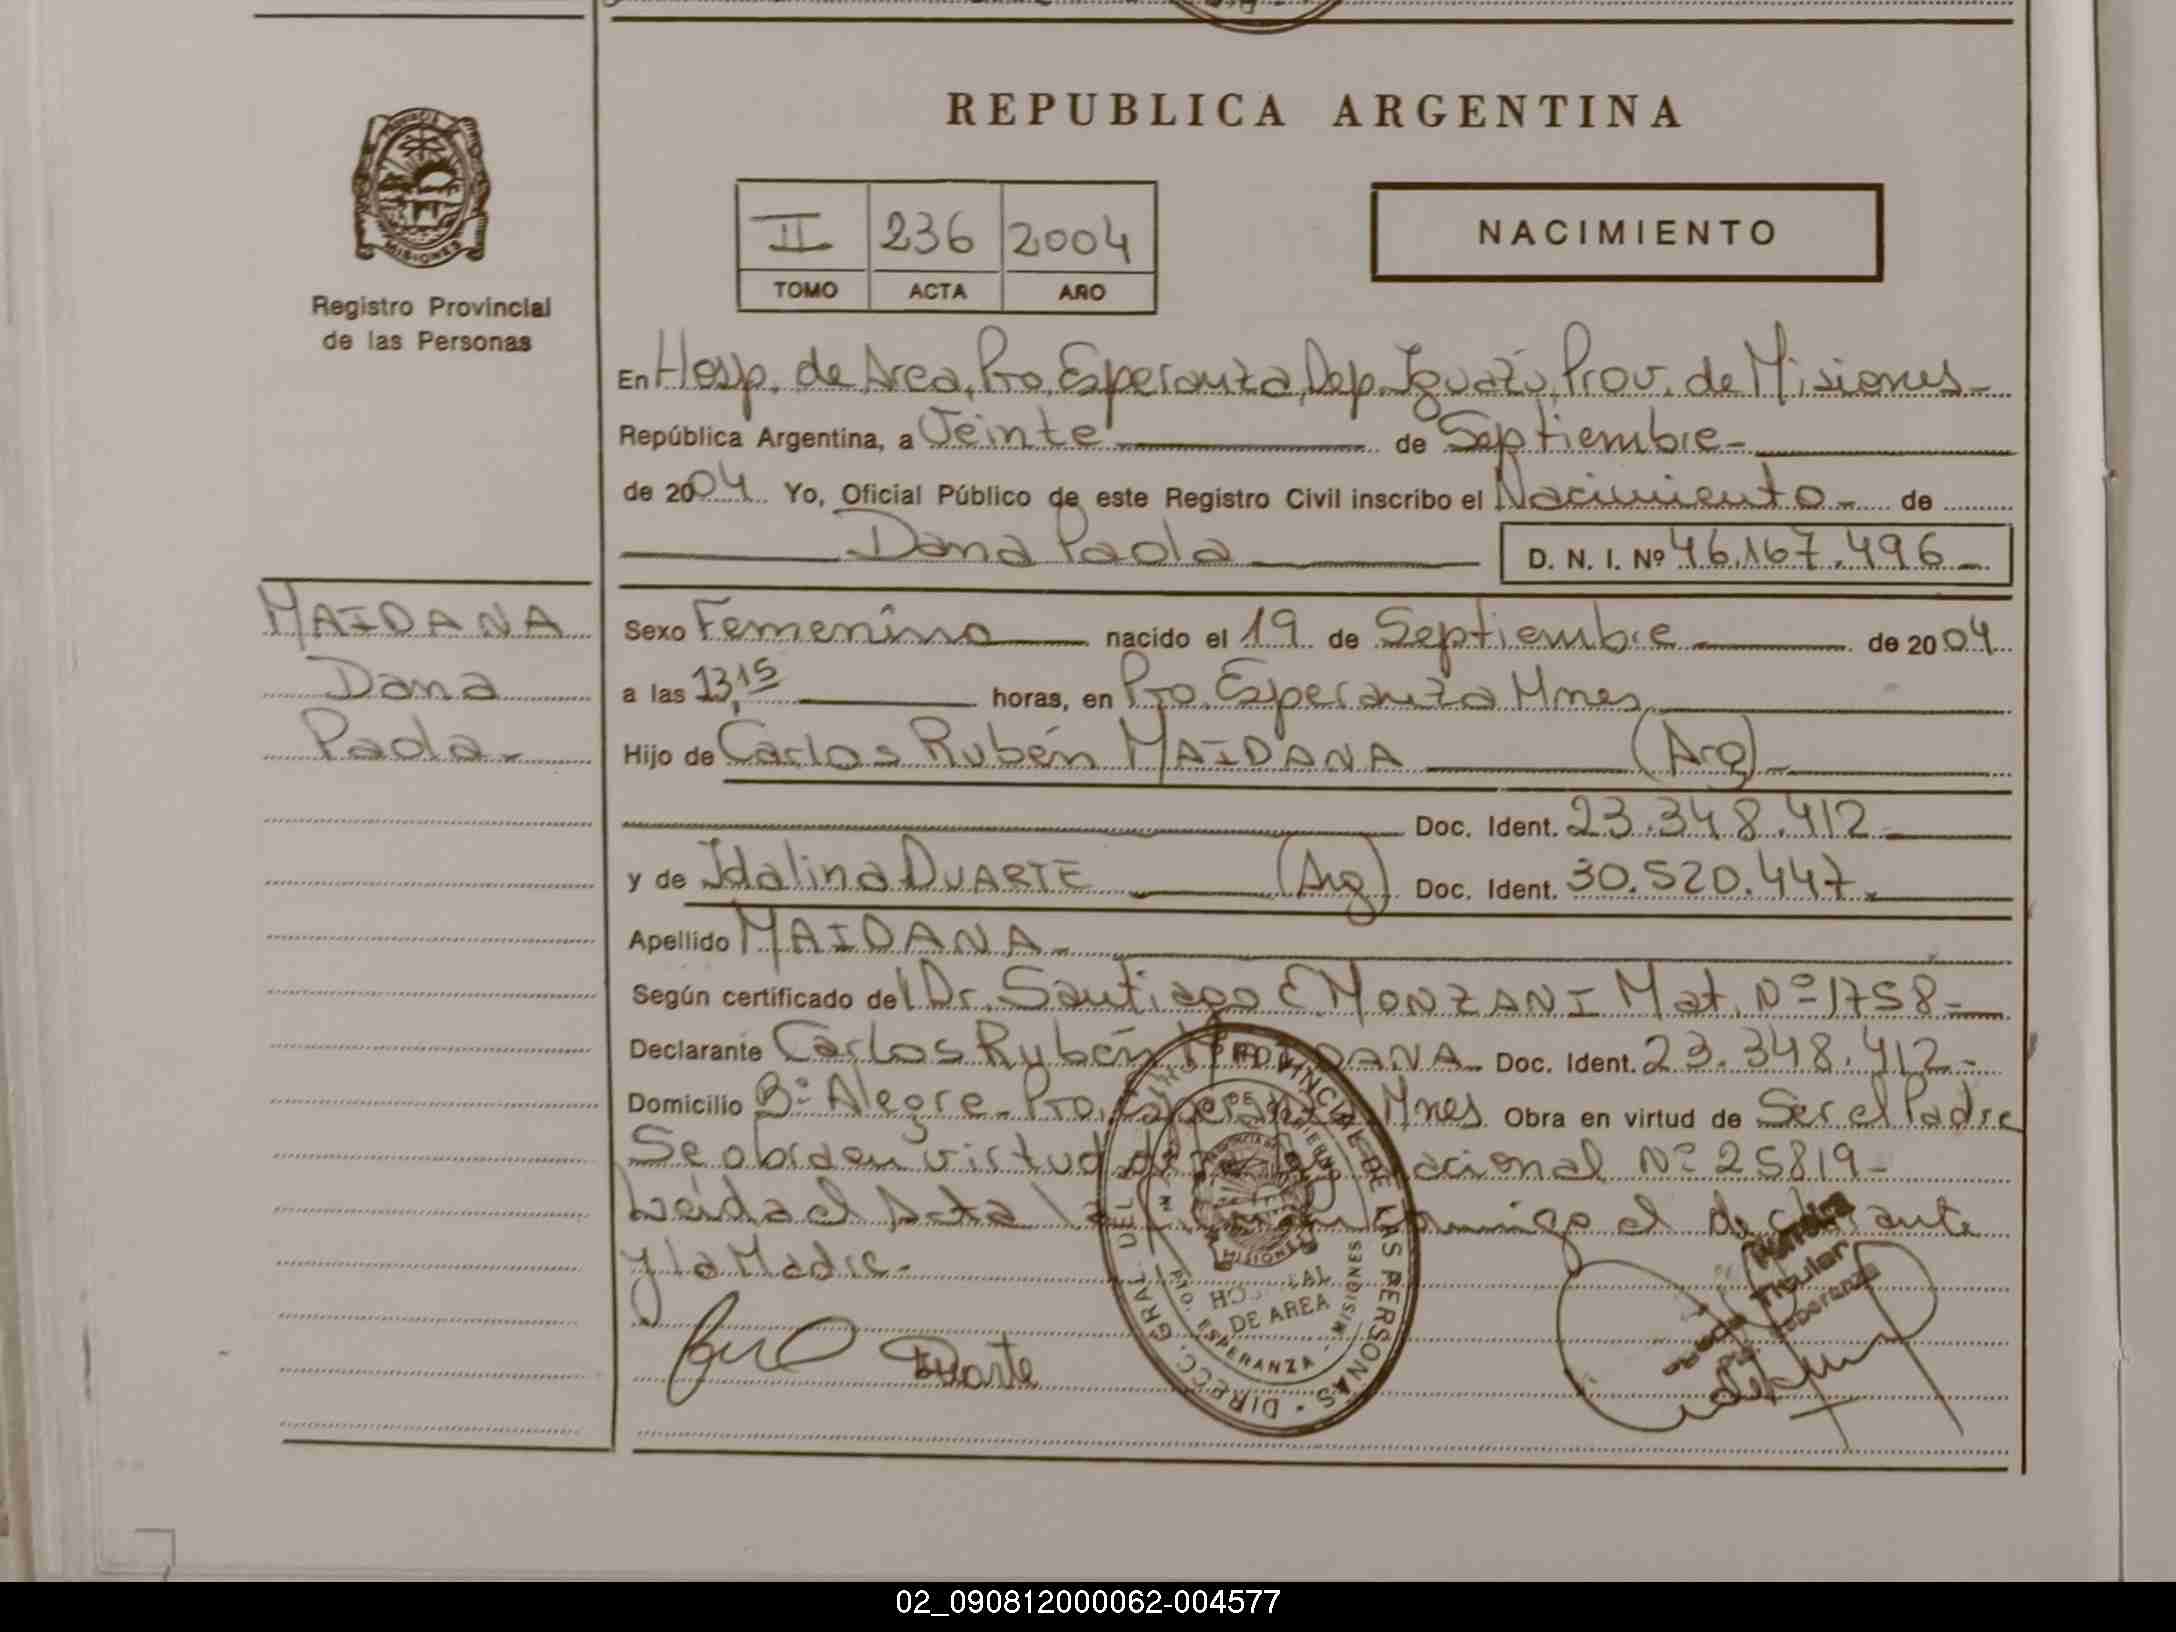 REPUBLICA ARGENTINA
PROVINCIA DE
MISIONES
Registro Provincial
de las Personas
II 236 2004
TOMO ACTA AÑO
NACIMIENTO
En Hosp. de Area, Pto. Esperanza, Dep. Iguazú, Prov. de Misiones-
República Argentina, a Veinte de Septiembre-
de 2004 Yo, Oficial Público de este Registro Civil inscribo el Nacimiento- de
Dana Paola D. N. I. Nº 46.167.496-
MAIDANA
Dana
Paola-
Sexo Femenino nacido el 19 de Septiembre de 2004
a las 13,15 horas, en Pto. Esperanza Mnes
Hijo de Carlos Rubén MAIDANA (Arg)-
Doc. Ident. 23.348.412-
y de Idalina DUARTE (Arg) Doc. Ident. 30.520.447-
Apellido MAIDANA-
Según certificado del Dr. Santiago E MONZANI Mat. Nº 1758-
Declarante Carlos Rubén MAIDANA- Doc. Ident. 23.348.412-
Domicilio Bº Alegre- Pto. Esperanza Mnes Obra en virtud de Ser el Padre
Se obra en virtud Nacional Nº 25819-
Leída el Acta la conmigo el declarante
y la Madre-
Duarte
DIRECC. GRAL. DEL REGISTRO PROVINCIAL DE LAS PERSONAS
MISIONES
HOSPITAL
DE AREA
PTO. ESPERANZA - MISIONES
Titular
Esperanza
02_090812000062-004577